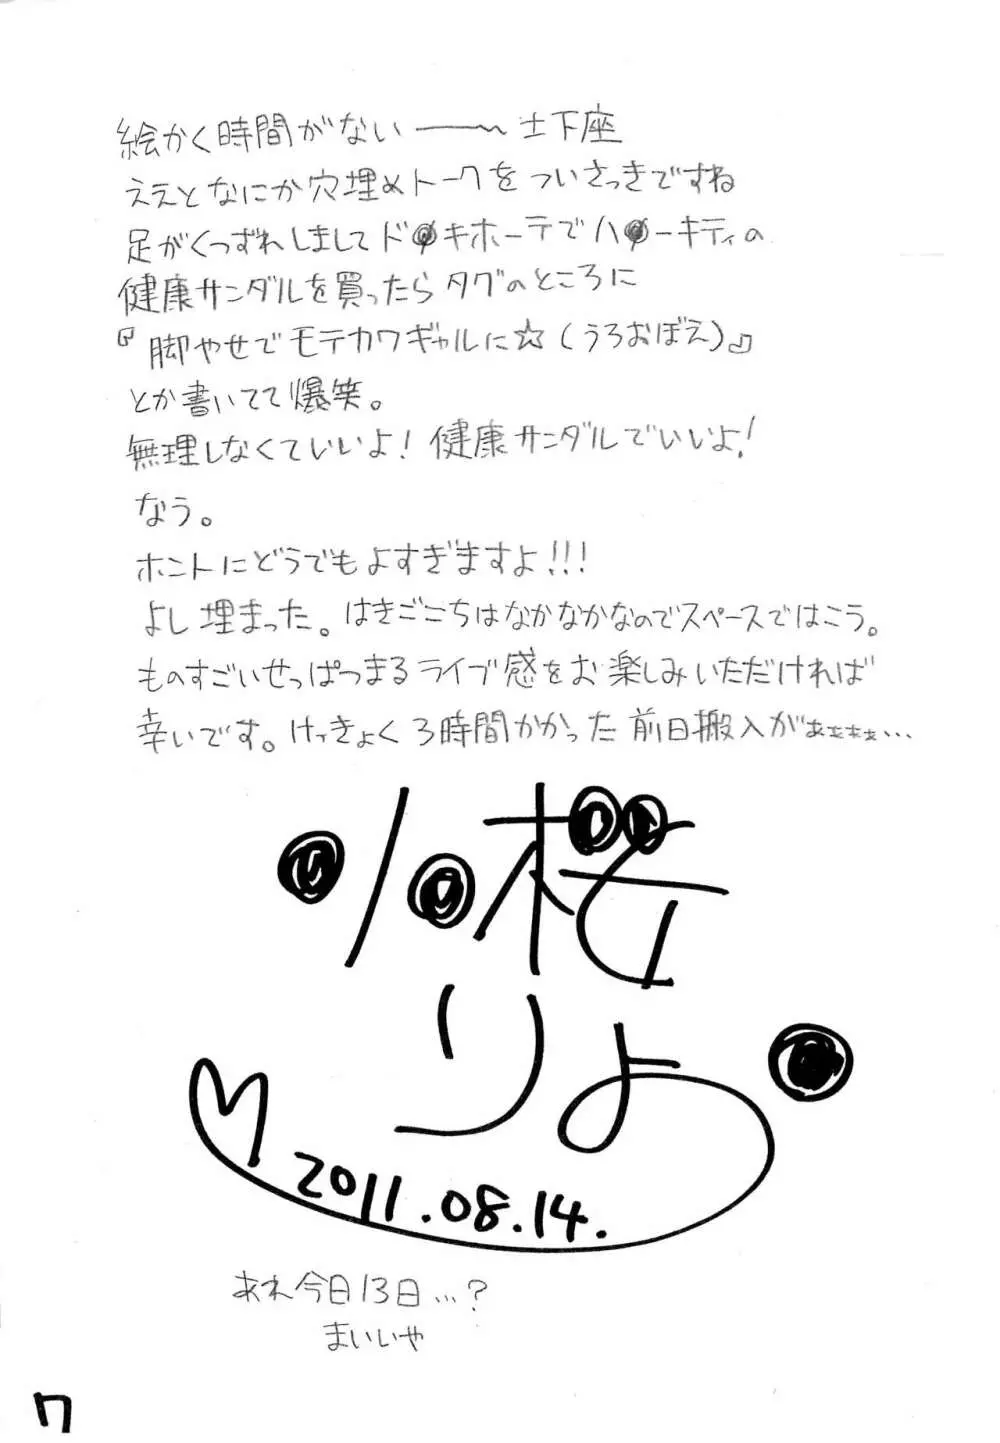 絵かく時間がない――〜 土下座
ええとなにか穴埋めトークをついさっきですね
足がくつずれしましてド●キホーテでハ●ーキティの
健康サンダルを買ったらタグのところに
『脚やせでモテカワギャルに☆(うろおぼえ)』
とか書いてて爆笑。
無理しなくていいよ! 健康サンダルでいいよ!
なう。
ホントにどうでもよすぎますよ!!!
よし埋まった。はきごこちはなかなかなのでスペースではこう。
ものすごいせっぱつまるライブ感をお楽しみいただければ
幸いです。けっきょく3時間かかった前日搬入がぁぁぁぁ…
桜
りょ
2011.08.14.
あれ今日13日…?
まいいや
7